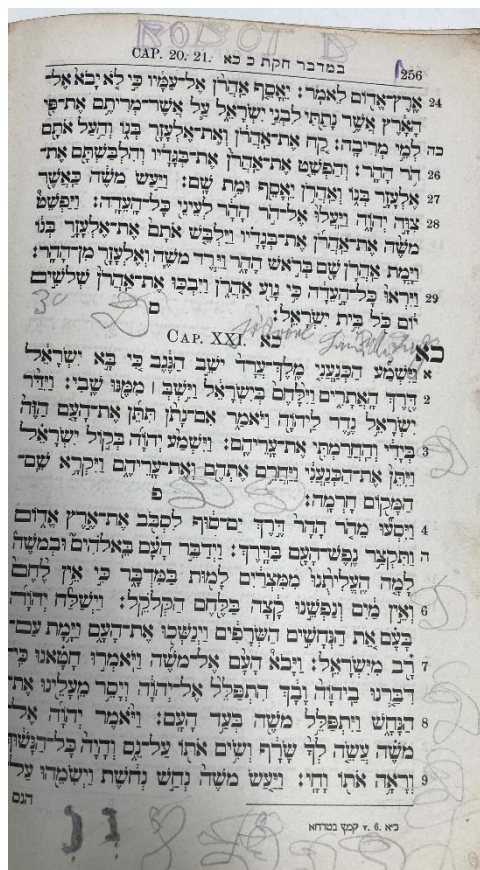 ROBOT B
256 במדבר חקת כ כא CAP. 20. 21.
24 אֶרֶץ־אֱדוֹם לֵאמֹר׃ יֵאָסֵף אַהֲרֹן אֶל־עַמָּיו כִּי לֹא יָבֹא אֶל־
הָאָרֶץ אֲשֶׁר נָתַתִּי לִבְנֵי יִשְׂרָאֵל עַל אֲשֶׁר־מְרִיתֶם אֶת־פִּי
כה לְמֵי מְרִיבָה׃ קַח אֶת־אַהֲרֹן וְאֶת־אֶלְעָזָר בְּנוֹ וְהַעַל אֹתָם
26 הֹר הָהָר׃ וְהַפְשֵׁט אֶת־אַהֲרֹן אֶת־בְּגָדָיו וְהִלְבַּשְׁתָּם אֶת־
27 אֶלְעָזָר בְּנוֹ וְאַהֲרֹן יֵאָסֵף וּמֵת שָׁם׃ וַיַּעַשׂ מֹשֶׁה כַּאֲשֶׁר
28 צִוָּה יְהוָה וַיַּעֲלוּ אֶל־הֹר הָהָר לְעֵינֵי כָּל־הָעֵדָה׃ וַיַּפְשֵׁט
מֹשֶׁה אֶת־אַהֲרֹן אֶת־בְּגָדָיו וַיַּלְבֵּשׁ אֹתָם אֶת־אֶלְעָזָר בְּנוֹ
וַיָּמָת אַהֲרֹן שָׁם בְּרֹאשׁ הָהָר וַיֵּרֶד מֹשֶׁה וְאֶלְעָזָר מִן־הָהָר׃
29 וַיִּרְאוּ כָּל־הָעֵדָה כִּי גָוַע אַהֲרֹן וַיִּבְכּוּ אֶת־אַהֲרֹן שְׁלֹשִׁים
יוֹם כֹּל בֵּית יִשְׂרָאֵל׃ ס
30
CAP. XXI. כא
כא
א וַיִּשְׁמַע הַכְּנַעֲנִי מֶלֶךְ־עֲרָד יֹשֵׁב הַנֶּגֶב כִּי בָּא יִשְׂרָאֵל
2 דֶּרֶךְ הָאֲתָרִים וַיִּלָּחֶם בְּיִשְׂרָאֵל וַיִּשְׁבְּ ׀ מִמֶּנּוּ שֶׁבִי׃ וַיִּדַּר
יִשְׂרָאֵל נֶדֶר לַיהוָה וַיֹּאמַר אִם־נָתֹן תִּתֵּן אֶת־הָעָם הַזֶּה
3 בְּיָדִי וְהַחֲרַמְתִּי אֶת־עָרֵיהֶם׃ וַיִּשְׁמַע יְהוָה בְּקוֹל יִשְׂרָאֵל
וַיִּתֵּן אֶת־הַכְּנַעֲנִי וַיַּחֲרֵם אֶתְהֶם וְאֶת־עָרֵיהֶם וַיִּקְרָא שֵׁם־
הַמָּקוֹם חָרְמָה׃ פ
4 וַיִּסְעוּ מֵהֹר הָהָר דֶּרֶךְ יַם־סוּף לִסְבֹב אֶת־אֶרֶץ אֱדוֹם
ה וַתִּקְצַר נֶפֶשׁ־הָעָם בַּדָּרֶךְ׃ וַיְדַבֵּר הָעָם בֵּאלֹהִים וּבְמֹשֶׁה
לָמָה הֶעֱלִיתֻנוּ מִמִּצְרַיִם לָמוּת בַּמִּדְבָּר כִּי אֵין לֶחֶם
6 וְאֵין מַיִם וְנַפְשֵׁנוּ קָצָה בַּלֶּחֶם הַקְּלֹקֵל׃ וַיְשַׁלַּח יְהוָה
בָּעָם אֵת הַנְּחָשִׁים הַשְּׂרָפִים וַיְנַשְּׁכוּ אֶת־הָעָם וַיָּמָת עַם־
7 רָב מִיִּשְׂרָאֵל׃ וַיָּבֹא הָעָם אֶל־מֹשֶׁה וַיֹּאמְרוּ חָטָאנוּ כִּי־
דִבַּרְנוּ בַיהוָה וָבָךְ הִתְפַּלֵּל אֶל־יְהוָה וְיָסֵר מֵעָלֵינוּ אֶת־
8 הַנָּחָשׁ וַיִּתְפַּלֵּל מֹשֶׁה בְּעַד הָעָם׃ וַיֹּאמֶר יְהוָה אֶל־
מֹשֶׁה עֲשֵׂה לְךָ שָׂרָף וְשִׂים אֹתוֹ עַל־נֵס וְהָיָה כָּל־הַנָּשׁוּךְ
9 וְרָאָה אֹתוֹ וָחָי׃ וַיַּעַשׂ מֹשֶׁה נְחַשׁ נְחֹשֶׁת וַיְשִׂמֵהוּ עַל־
הנס
כ״א v. 6. קמץ בטרחא